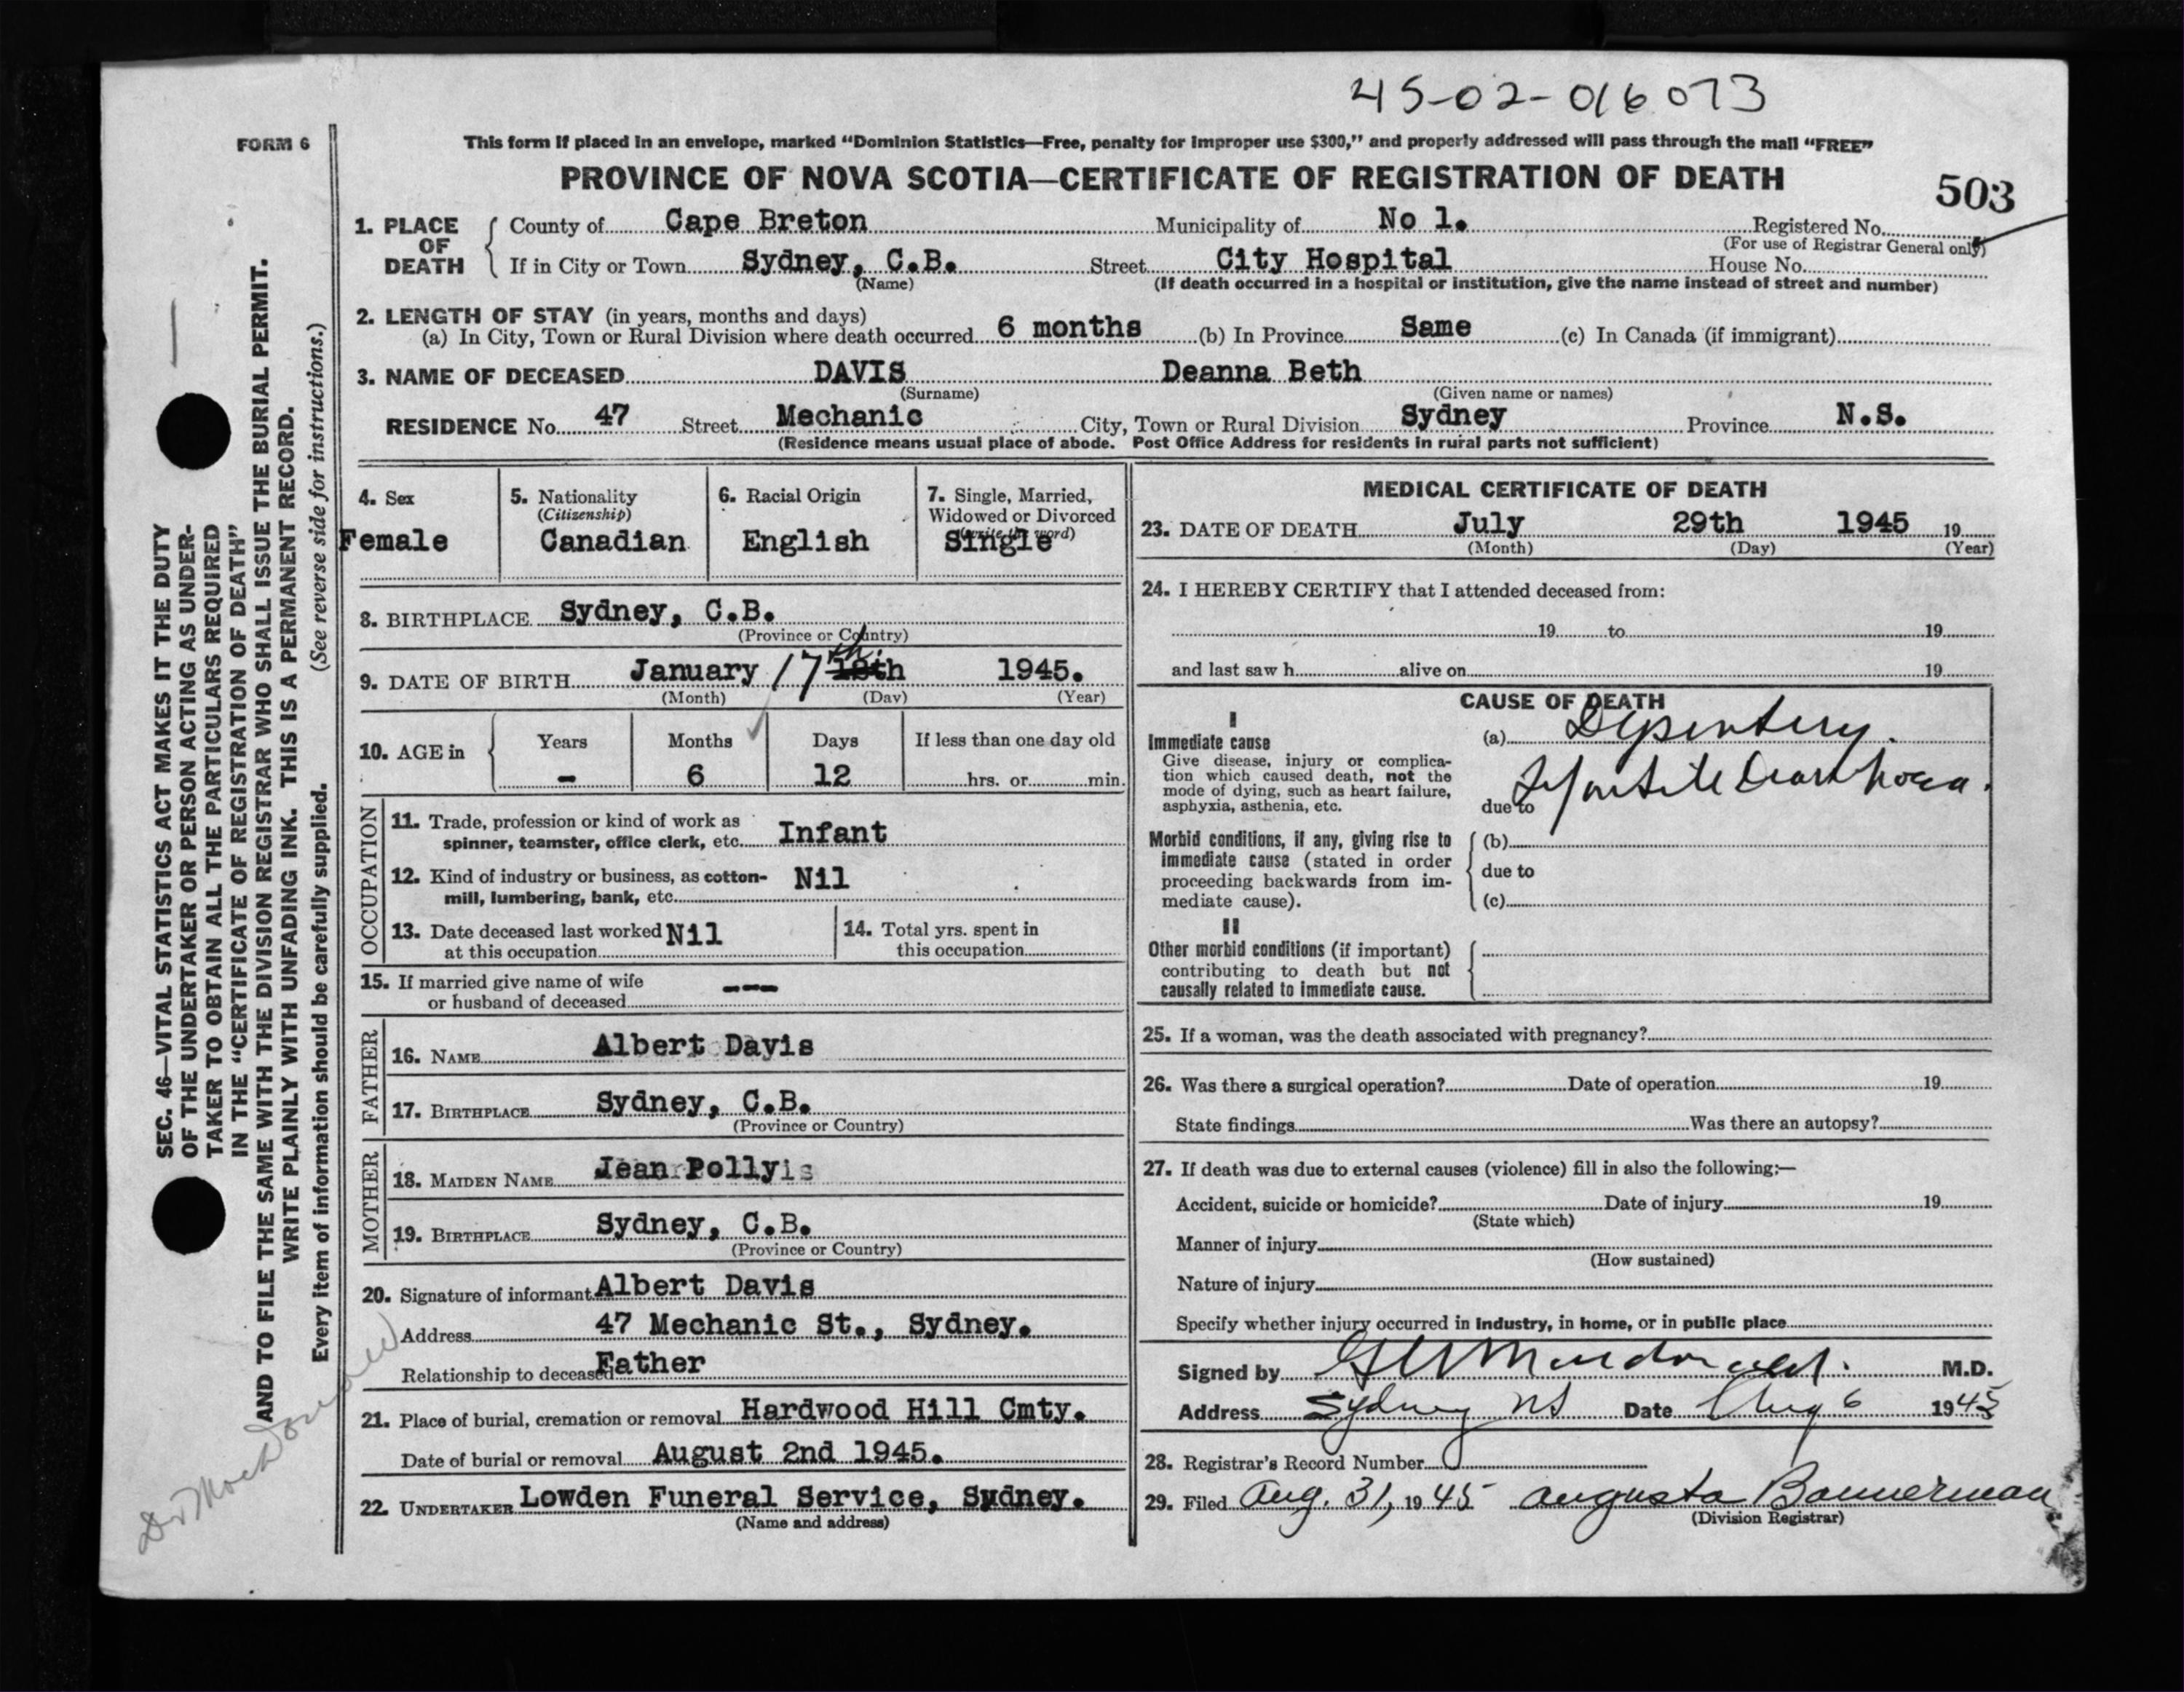 45-02-016073
FORM 6
This form if placed in an envelope, marked “Dominion Statistics—Free, penalty for improper use $300,” and properly addressed will pass through the mail “FREE”
PROVINCE OF NOVA SCOTIA—CERTIFICATE OF REGISTRATION OF DEATH
503
1. PLACE OF DEATH
County of Cape Breton Municipality of No 1. Registered No.
(For use of Registrar General only)
If in City or Town Sydney, C.B. Street City Hospital House No.
(Name) (If death occurred in a hospital or institution, give the name instead of street and number)
2. LENGTH OF STAY (in years, months and days)
(a) In City, Town or Rural Division where death occurred 6 months (b) In Province Same (c) In Canada (if immigrant)
3. NAME OF DECEASED DAVIS Deanna Beth
(Surname) (Given name or names)
RESIDENCE No. 47 Street Mechanic City, Town or Rural Division Sydney Province N.S.
(Residence means usual place of abode. Post Office Address for residents in rural parts not sufficient)
4. Sex
Female
5. Nationality
(Citizenship)
Canadian
6. Racial Origin
English
7. Single, Married,
Widowed or Divorced
(write the word)
Single
8. BIRTHPLACE Sydney, C.B.
(Province or Country)
9. DATE OF BIRTH January 17th. 18th 1945.
(Month) (Day) (Year)
10. AGE in
Years Months Days If less than one day old
- 6 12 hrs. or min.
OCCUPATION
11. Trade, profession or kind of work as
spinner, teamster, office clerk, etc. Infant
12. Kind of industry or business, as cotton-
mill, lumbering, bank, etc. Nil
13. Date deceased last worked
at this occupation Nil
14. Total yrs. spent in
this occupation
15. If married give name of wife
or husband of deceased ---
FATHER
16. NAME Albert Davis
17. BIRTHPLACE Sydney, C.B.
(Province or Country)
MOTHER
18. MAIDEN NAME Jean Polly
19. BIRTHPLACE Sydney, C.B.
(Province or Country)
20. Signature of informant Albert Davis
Address 47 Mechanic St., Sydney.
Relationship to deceased Father
21. Place of burial, cremation or removal Hardwood Hill Cmty.
Date of burial or removal August 2nd 1945.
22. UNDERTAKER Lowden Funeral Service, Sydney.
(Name and address)
MEDICAL CERTIFICATE OF DEATH
23. DATE OF DEATH July 29th 1945 19
(Month) (Day) (Year)
24. I HEREBY CERTIFY that I attended deceased from:
19 to 19
and last saw h alive on 19
CAUSE OF DEATH
I
Immediate cause
Give disease, injury or complica-
tion which caused death, not the
mode of dying, such as heart failure,
asphyxia, asthenia, etc.
(a) Dysentery.
due to Infantile Diarrhoea.
Morbid conditions, if any, giving rise to
immediate cause (stated in order
proceeding backwards from im-
mediate cause).
(b)
due to
(c)
II
Other morbid conditions (if important)
contributing to death but not
causally related to immediate cause.
25. If a woman, was the death associated with pregnancy?
26. Was there a surgical operation? Date of operation 19
State findings Was there an autopsy?
27. If death was due to external causes (violence) fill in also the following:—
Accident, suicide or homicide? Date of injury 19
(State which)
Manner of injury
(How sustained)
Nature of injury
Specify whether injury occurred in industry, in home, or in public place
Signed by Macdonald. M.D.
Address Sydney NS Date Aug 6 1945
28. Registrar's Record Number
29. Filed Aug. 31, 1945 Augusta Bannerman
(Division Registrar)
SEC. 46—VITAL STATISTICS ACT MAKES IT THE DUTY
OF THE UNDERTAKER OR PERSON ACTING AS UNDER-
TAKER TO OBTAIN ALL THE PARTICULARS REQUIRED
IN THE “CERTIFICATE OF REGISTRATION OF DEATH”
AND TO FILE THE SAME WITH THE DIVISION REGISTRAR WHO SHALL ISSUE THE BURIAL PERMIT.
WRITE PLAINLY WITH UNFADING INK. THIS IS A PERMANENT RECORD.
Every item of information should be carefully supplied. (See reverse side for instructions.)
Dr MacDonald